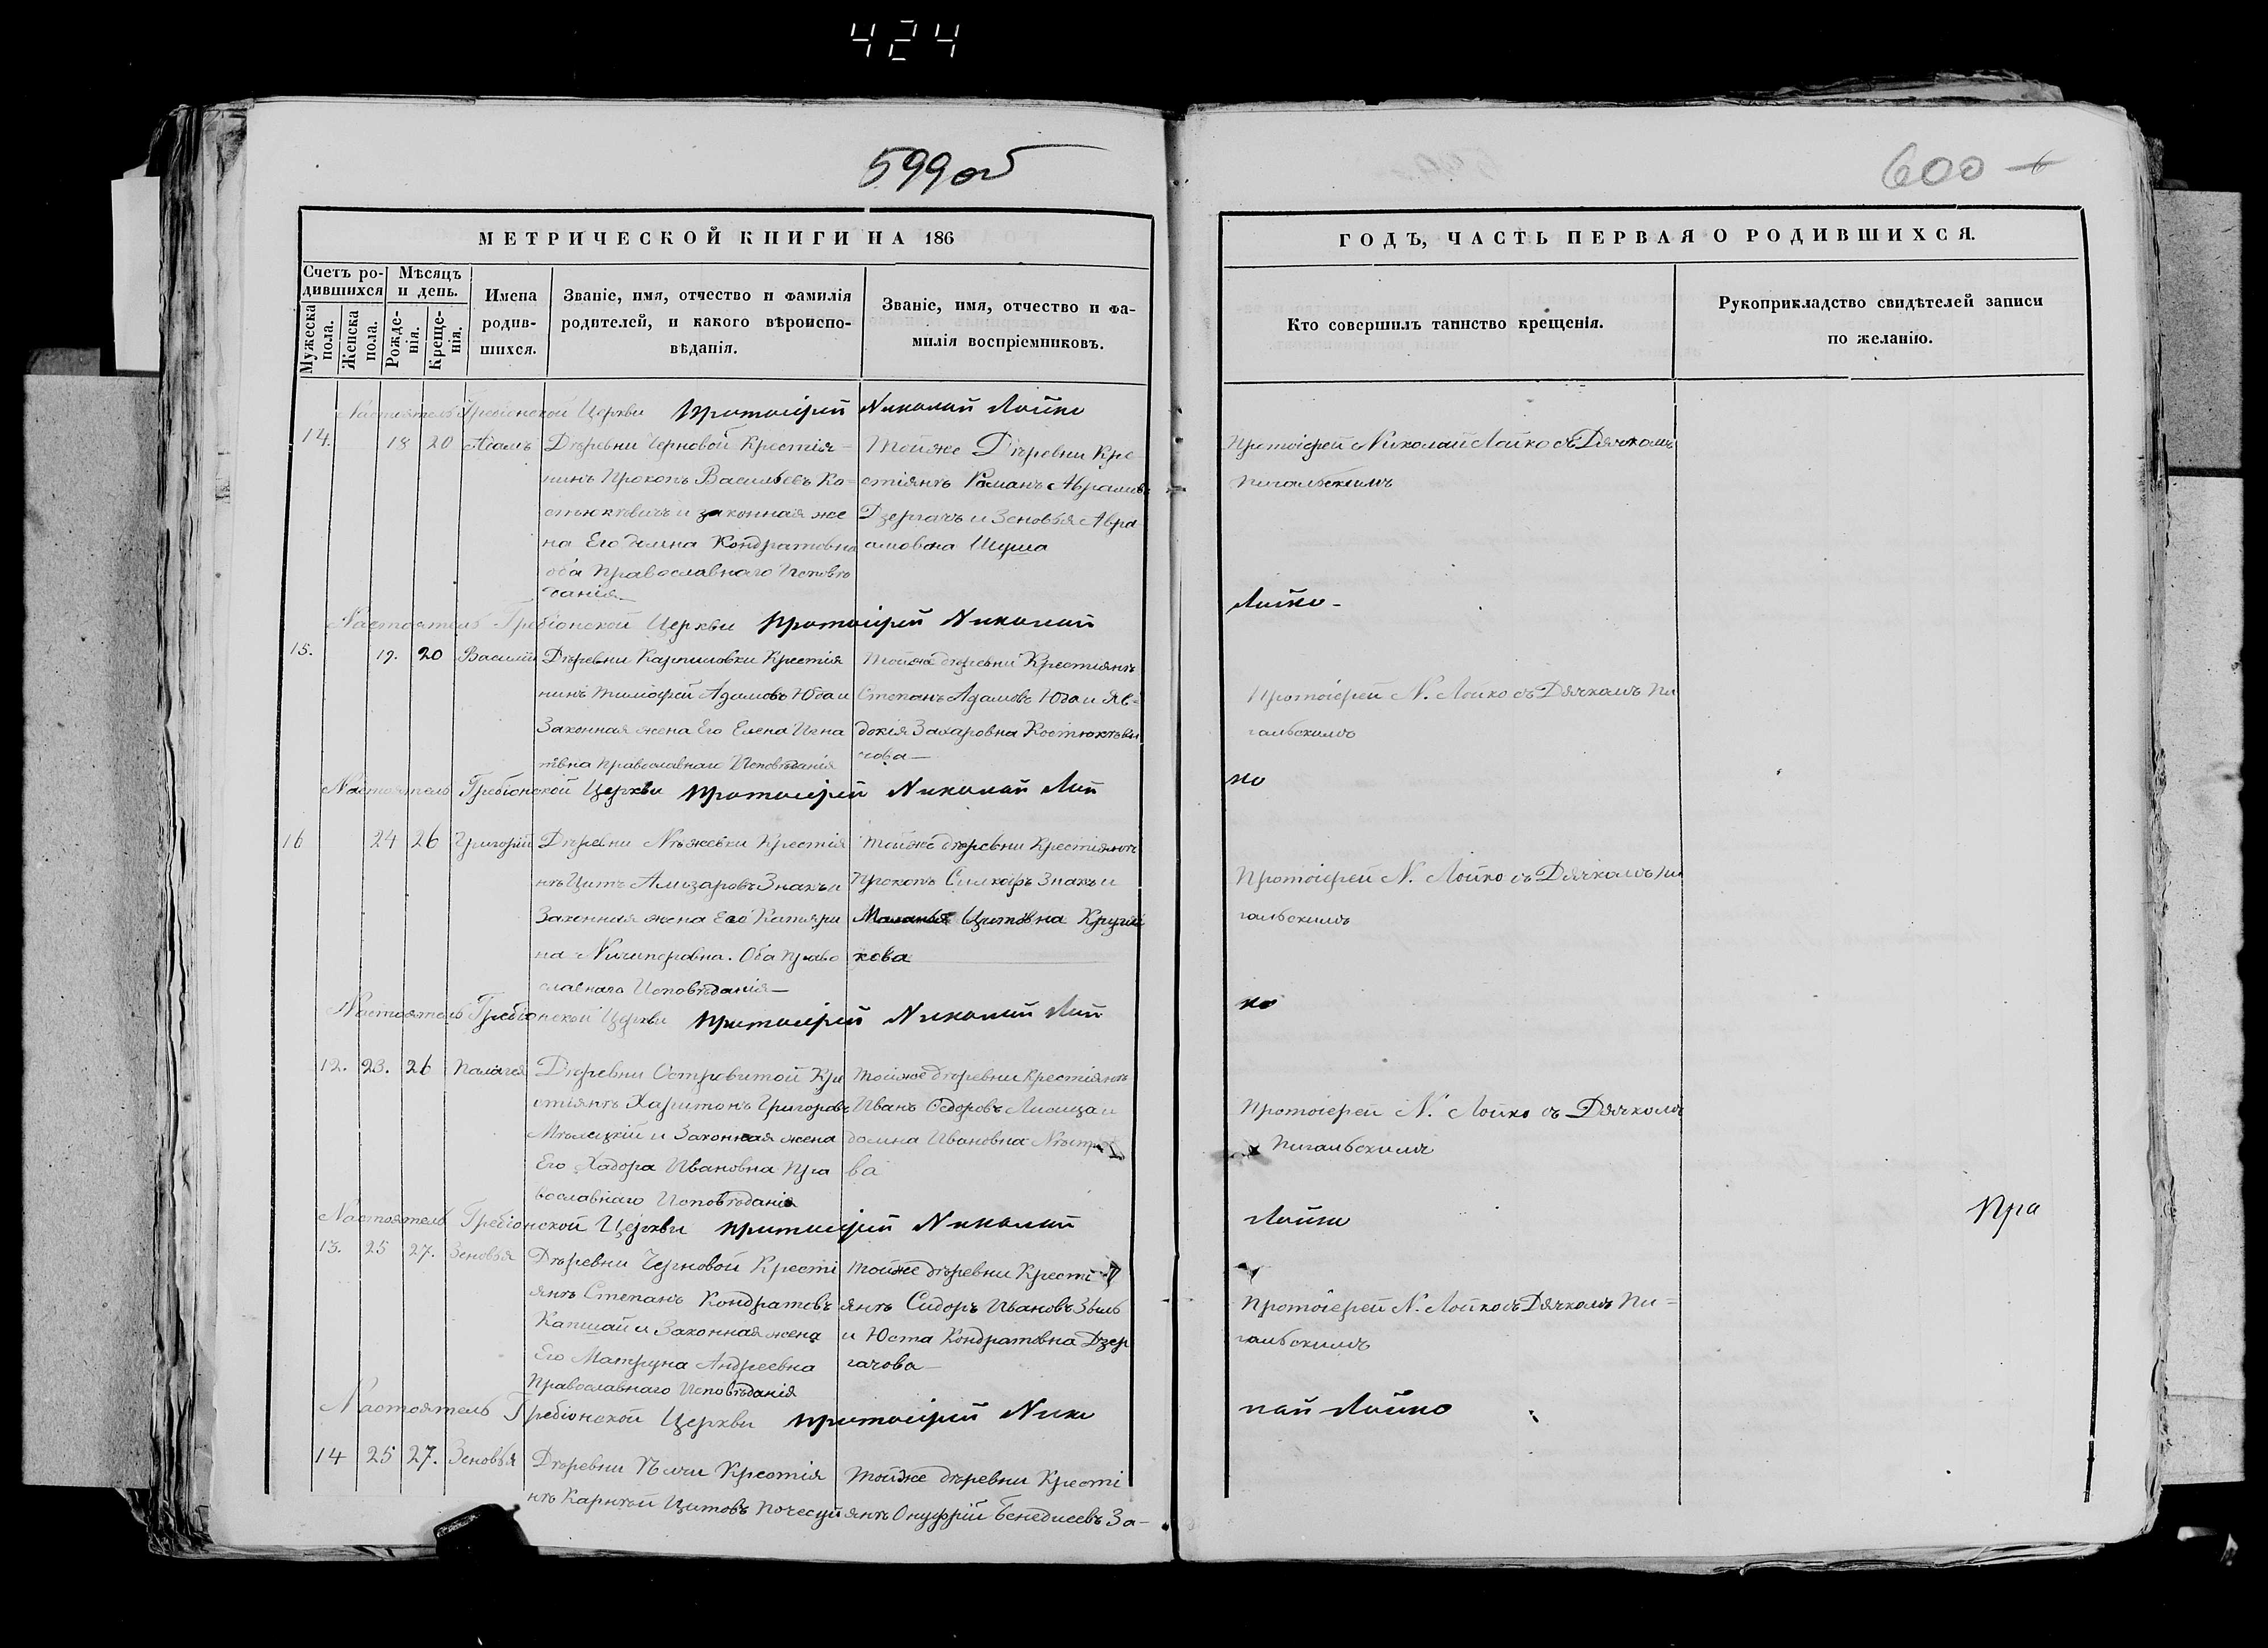 424
599 об
600
МЕТРИЧЕСКОЙ КНИГИ НА 186
ГОДЪ, ЧАСТЬ ПЕРВАЯ О РОДИВШИХСЯ.
Счетъ ро-
дившихся
Мужеска пола.
Женска пола.
Мѣсяцъ
и день.
Рожде-
нія.
Креще-
нія.
Имена
родив-
шихся.
Званіе, имя, отчество и фамилія
родителей, и какого вѣроиспо-
вѣданія.
Званіе, имя, отчество и фа-
милія воспріемниковъ.
Кто совершилъ таинство крещенія.
Рукоприкладство свидѣтелей записи
по желанію.
Настоятель Гребіонской Церкви протоіерей Николай Лойко
14. 18 20 Адамъ
Дѣревни Черновой Крестія-
нинъ Прокопъ Васильевъ Ко-
стюкѣвичъ и законная же
на Его Домна Кондратовна
оба Православнаго Исповѣ
данія.
Тойже Дѣревни Кре
стіянѣ Романъ Аврамовъ
Дзергачъ и Зеновья Авра
амовна Шуша
Протоіерей Николай Лойко съ Дячкомъ
Пигальскимъ
Настоятель Гребіонской Церкви протоіерей Николай
Лойко-
15. 19. 20 Василій
Дѣревни Карпиловки Крестія
нинъ Тимофей Адамовъ Юда и
Законная жена Его Елена Игна
тѣвна Православнаго Исповѣданія
Тойже дѣревни Крестіянѣ
Степанъ Адамовъ Юда и Яв=
докія Захаровна Костюкѣви
чова—
Протоіерей N. Лойко съ Дячкомъ Пи
гальскимъ
Настоятель Гребіонской Церкви протоіерей Николай Лой
ко
16 24 26 Григорій
Дѣревни Нѣжевки Крестія
нѣ Цитъ Ализаровъ Знакъ и
Законная жена Его Катяри
на Ничипоровна. Оба Право
славнаго Исповѣданія—
Тойже дѣревни Крестіянѣ
Прокопъ Знакъ и
Маланья Цитовна
кова
Протоіерей N. Лойко съ Дячкомъ Пи
гальскимъ
Настоятель Гребіонской Церкви протоіерей Николай Лой
ко
12. 23. 26 Палагея
Дѣревни Островитой Кре
стіянѣ Харитонъ Григоровъ
Мѣлецкій и Законная жена
Его Хадора Ивановна Пра
вославнаго Исповѣданія
Тойже дѣревни Крестіянѣ
Иванъ Сѣдоровъ и
домна Ивановна
ва
Протоіерей N. Лойко съ Дячкомъ
Пигальскимъ
Настоятель Гребіонской Церкви протоіерей Николай
Лойко
Пра
13. 25 27. Зеновья
Дѣревни Черновой Кресті
янѣ Степанъ Кондратовъ
Капшай и Законная жена
Его Матруна Андреевна
Православнаго Исповѣданія
Тойже дѣревни Кресті
янѣ Сидоръ Ивановъ Збыль
и Юста Кондратовна Дзер
гачова—
Протоіерей N. Лойко съ Дячкомъ Пи=
гальскимъ
Настоятель Гребіонской Церкви протоіерей Нико
лай Лойко
14 25 27. Зеновья
Дѣревни Крестія
нѣ Карнѣй Цитовъ Почесуй
Тойже дѣревни Кресті
янѣ Онуфрій Бенедисевъ За-